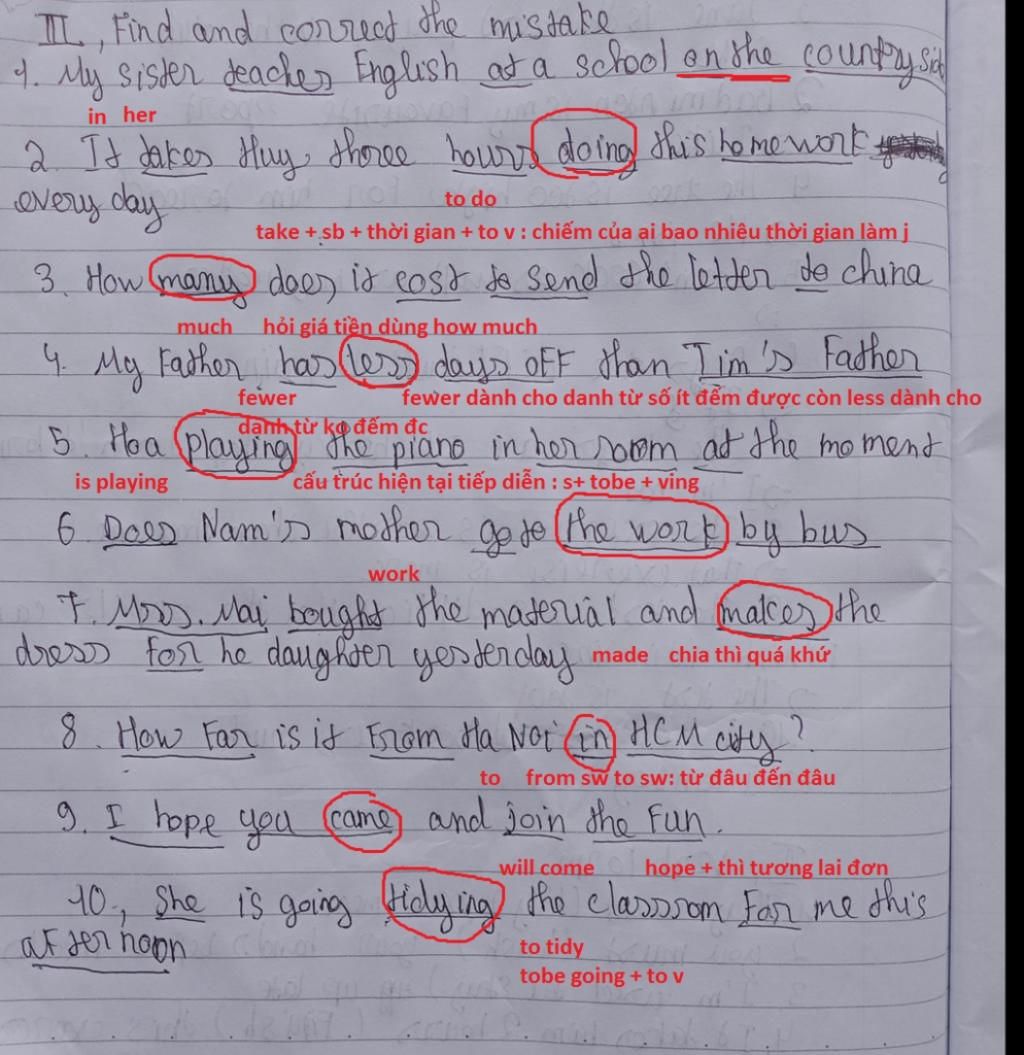 III, Find and correct the mistake
1. My sister teaches English at a school on the countrysid
in her
2. It takes Huy three hours doing this homework
every day
to do
take + sb + thời gian + to v : chiếm của ai bao nhiêu thời gian làm j
3. How many does it cost to send the letter to china
much hỏi giá tiền dùng how much
4. My Father has less days off than Tim's Father
fewer fewer dành cho danh từ số ít đếm được còn less dành cho
danh từ ko đếm đc
5. Hoa playing the piano in her room at the moment
is playing cấu trúc hiện tại tiếp diễn : s+ tobe + ving
6 Does Nam's mother go to the work by bus
work
7. Mrs. Mai bought the material and makes the
dress for he daughter yesterday made chia thì quá khứ
8. How Far is it From Ha Noi in HCM city?
to from sw to sw: từ đâu đến đâu
9. I hope you came and join the Fun.
will come hope + thì tương lai đơn
10., She is going tidying the classrom For me this
afternoon
to tidy
tobe going + to v